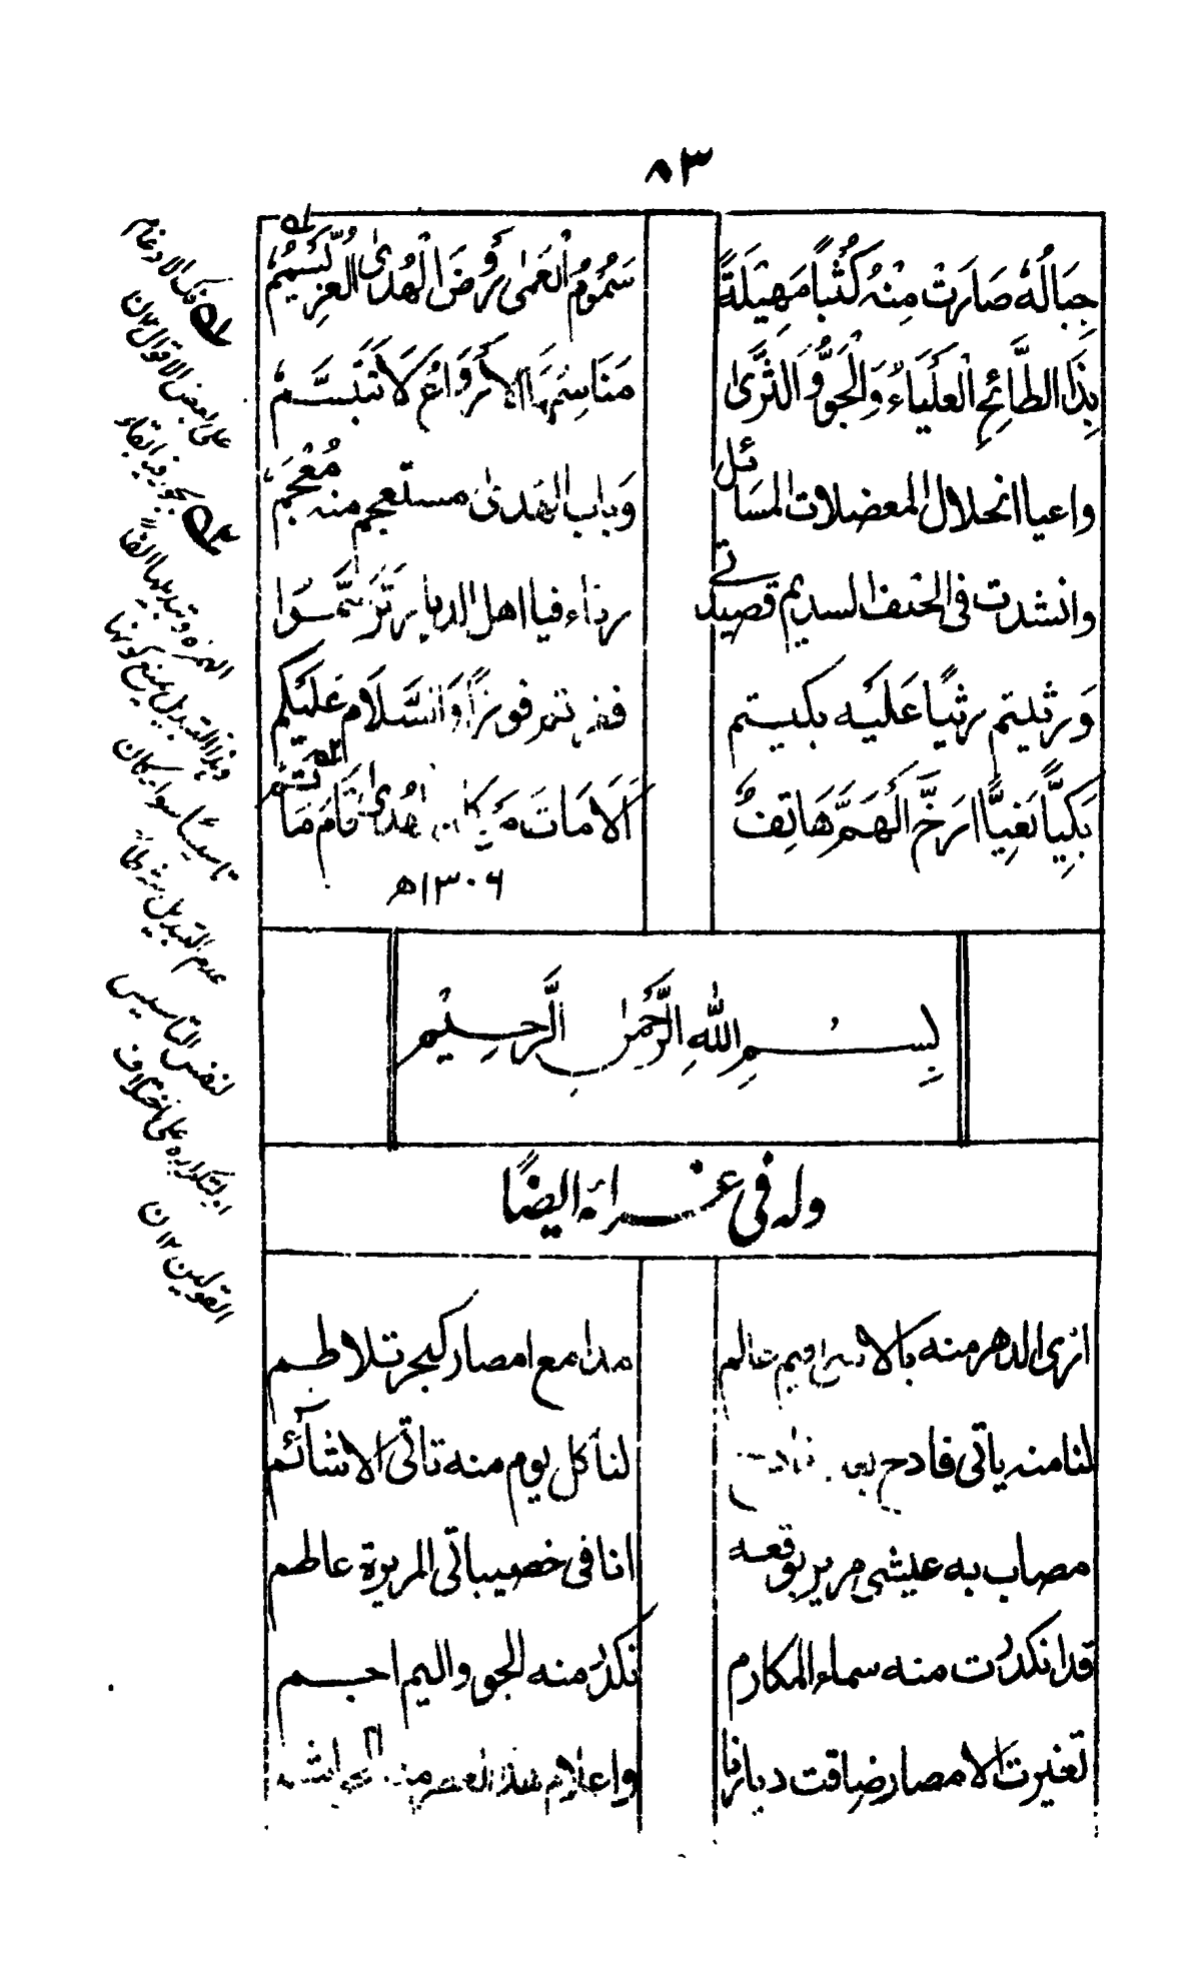 ٨٣
جِبَالُهٗ صَارَتْ مِنْهُ كُثُبًا مَهِيْلَةً سَمُوْمُ الْعَمٰى رَوْضَ الْهُدٰى الْعِزِ يَسْمُمُ
بِذَا الطَّائِحِ الْعَلْيَاءُ وَالْجَوُّ وَالثَّرٰى مَنَاسِمُهَا الْاَرْوَاعُ لَا تَتَبَسَّمُ
واعيا انحلال المعضلات المسائل وَباب الهدىٰ مستعجم منه مُعْجَمُ
وانشدت فى الحنف السديم قصيدتى رثاء فيا اهل الديار تَرَسَّمُوْا
وَرثيتم رثيًا عَلَيْه بكيتم فوزًا وَالسَّلَام عَلَيْكُم
بَكِيًّا نَعِيًّا ارَّخَ الْهَمَّ هَاتِفٌ اَلَا مَاتَ هُدٰى قَامَ مَاتم
١٣٠٦ھ
بِسْمِ اللهِ الرَّحْمٰنِ الرَّحِيْمِ
وله فى عزائه ايضًا
ارى الدهر منه بالا عالم مدا مع امصار كبحر تلاطم
لنا منه ياتى فادح لنا كل يوم منه تاتى الاشائم
مصاب به عيشى مرير بوقعه انا فى خصيباتى المريرة عاطم
قد انكدرت منه سماء المكارم تكدر منه الجو واليم احجم
تغيرت الامصار ضاقت ديارنا واعلام هذا العصر منه
له فك الادغام
على بعض الاقوال ١٢ن
له يجوز فيه ابقاء
الهمزه وتبديلها الفًا
وهذا التبديل يمنع كونها
تاسيسًا سواء كان
عدم التبديل شرطًا
لنفس التاسيس
او لتكراره على اختلاف
القولين ١٢ن